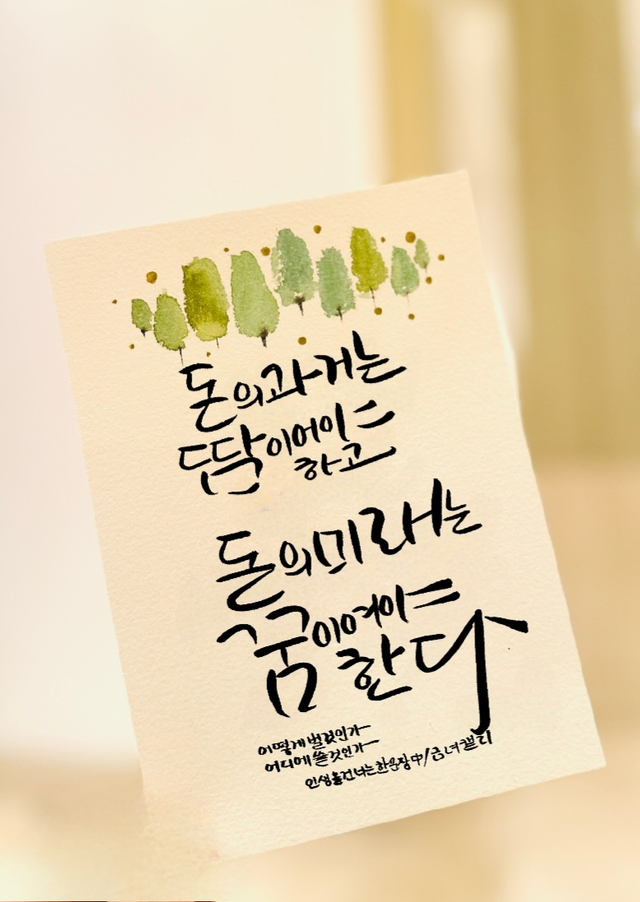 돈의과거는
땀이어야
하고
돈의미래는
꿈이여야
한다
어떻게 벌것인가
어디에 쓸것인가
인생을건너는한문장中/금녀캘리